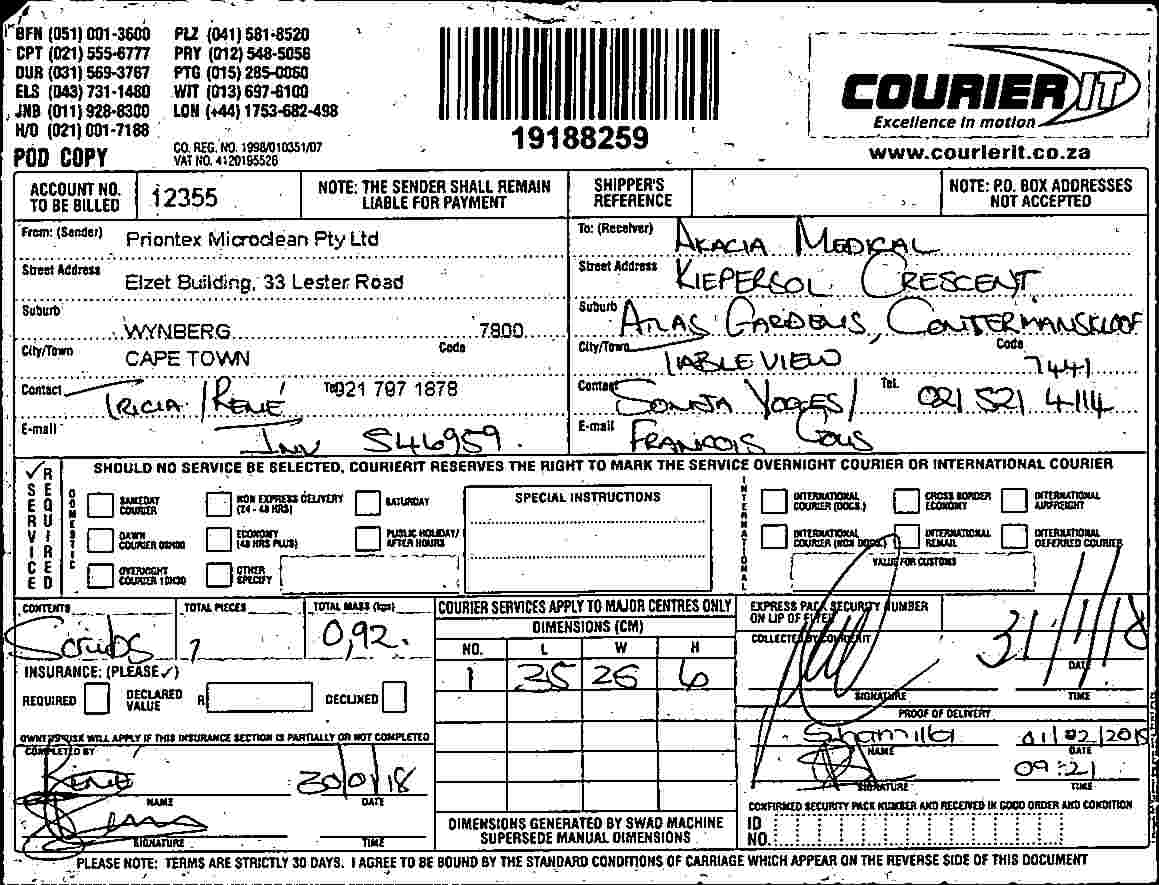 BFN (051) 001-3600 PLZ (041) 581-8520
CPT (021) 555-6777 PRY (012) 548-5056
DUR (031) 569-3767 PTG (015) 285-0060
ELS (043) 731-1480 WIT (013) 697-6100
JNB (011) 928-8300 LON (+44) 1753-682-498
H/O (021) 001-7188
POD COPY
CO. REG. NO. 1998/010351/07
VAT NO. 4120195526
19188259
COURIER IT
Excellence in motion
www.courierit.co.za
ACCOUNT NO. TO BE BILLED 12355
NOTE: THE SENDER SHALL REMAIN LIABLE FOR PAYMENT
SHIPPER'S REFERENCE
NOTE: P.O. BOX ADDRESSES NOT ACCEPTED
From: (Sender) Priontex Microclean Pty Ltd
Street Address Elzet Building, 33 Lester Road
Suburb WYNBERG 7800
City/Town CAPE TOWN Code
Contact TRICIA / RENE Tel 021 797 1878
E-mail INV 546959.
To: (Receiver) AKACIA MEDICAL
Street Address KIEPERSOL CRESCENT
Suburb ATLAS GARDENS, CONTERMANSKLOOF
City/Town TABLEVIEW Code 7441
Contact SONJA VOGES / Tel. 021 521 4114
E-mail FRANCOIS GOUS
SHOULD NO SERVICE BE SELECTED, COURIERIT RESERVES THE RIGHT TO MARK THE SERVICE OVERNIGHT COURIER OR INTERNATIONAL COURIER
✓ SERVICE REQUIRED
DOMESTIC
SAMEDAY COURIER
NON EXPRESS DELIVERY (24 - 48 HRS)
SATURDAY
DAWN COURIER 08H00
ECONOMY (48 HRS PLUS)
PUBLIC HOLIDAY/ AFTER HOURS
OVERNIGHT COURIER 10H30
OTHER SPECIFY
SPECIAL INSTRUCTIONS
INTERNATIONAL
INTERNATIONAL COURIER (DOCS.)
CROSS BORDER ECONOMY
INTERNATIONAL AIRFREIGHT
INTERNATIONAL COURIER (NON DOCS.)
INTERNATIONAL REMAIL
INTERNATIONAL DEFERRED COURIER
VALUE FOR CUSTOMS
CONTENTS Scrubs
TOTAL PIECES
TOTAL MASS (kgs) 0,92.
INSURANCE: (PLEASE ✓)
REQUIRED
DECLARED VALUE R
DECLINED
OWNERS RISK WILL APPLY IF THIS INSURANCE SECTION IS PARTIALLY OR NOT COMPLETED
COMPLETED BY
RENE 30/01/18
NAME DATE
SIGNATURE TIME
COURIER SERVICES APPLY TO MAJOR CENTRES ONLY
DIMENSIONS (CM)
NO. L W H
1 35 26 6
DIMENSIONS GENERATED BY SWAD MACHINE SUPERSEDE MANUAL DIMENSIONS
EXPRESS PACK SECURITY NUMBER
ON LIP OF FLYER
COLLECTED BY COURIERIT
31/1/18
DATE
SIGNATURE TIME
PROOF OF DELIVERY
Shamilla 01/02/2018
NAME DATE
09:21
SIGNATURE TIME
CONFIRMED SECURITY PACK NUMBER AND RECEIVED IN GOOD ORDER AND CONDITION
ID NO.
PLEASE NOTE: TERMS ARE STRICTLY 30 DAYS. I AGREE TO BE BOUND BY THE STANDARD CONDITIONS OF CARRIAGE WHICH APPEAR ON THE REVERSE SIDE OF THIS DOCUMENT